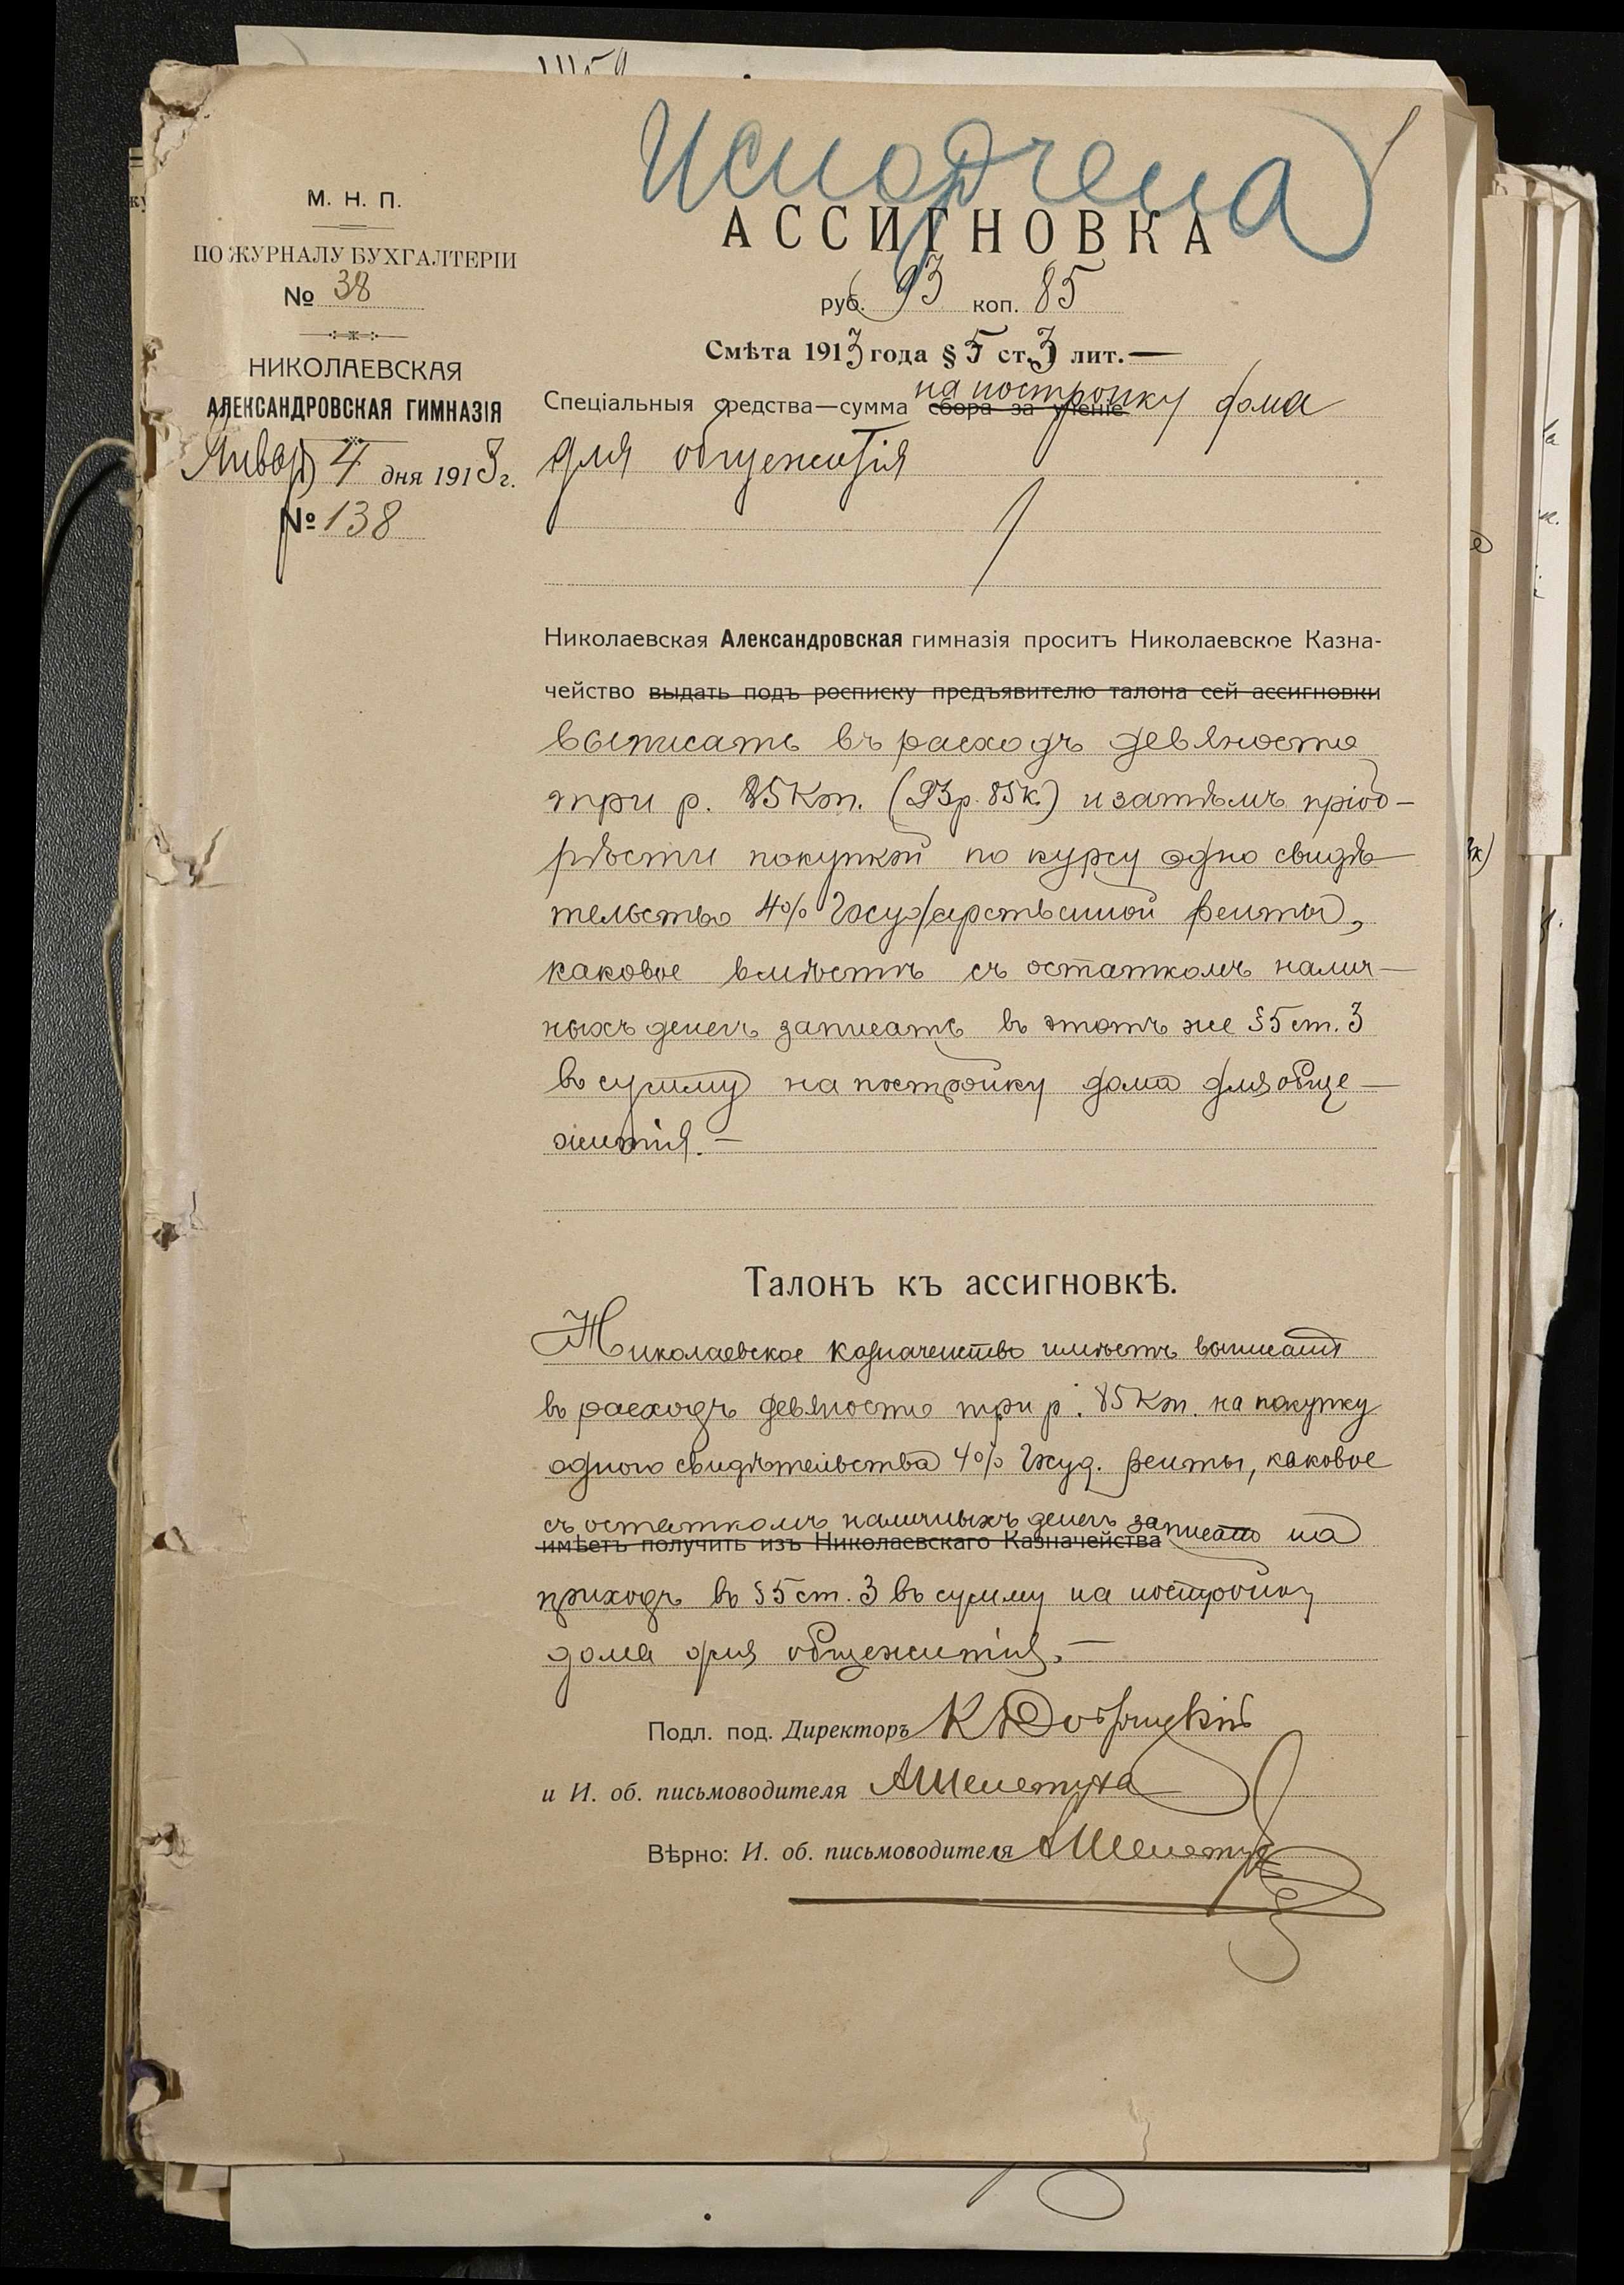 Испорчена
М. Н. П.
ПО ЖУРНАЛУ БУХГАЛТЕРІИ
№ 38
НИКОЛАЕВСКАЯ
АЛЕКСАНДРОВСКАЯ ГИМНАЗІЯ
Январ 4 дня 1913 г.
№ 138
АССИГНОВКА
руб. 93 коп. 85
Смѣта 1913 года § 5 ст. 3 лит. —
на постройку дома
Спеціальныя средства—сумма сбора за ученіе
для общежитія
Николаевская Александровская гимназія проситъ Николаевское Казна-
чейство выдать подъ росписку предъявителю талона сей ассигновки
выписать въ расходъ девяносто
три р. 85 коп. (93р. 85к.) и затѣмъ пріоб-
рѣсти покупкой по курсу одно свидѣ-
тельство 4% Государственной ренты,
каковое вмѣстѣ съ остаткомъ налич-
ныхъ денегъ записать въ этотъ же §5 ст. 3
въ сумму на постройку дома для обще-
житія. —
Талонъ къ ассигновкѣ.
Николаевское Казначейство имѣетъ выписать
въ расходъ девяносто три р. 85 коп. на покупку
одного свидѣтельства 4% Госуд. ренты, каковое
съ остаткомъ наличныхъ денегъ записать на
имѣетъ получить изъ Николаевскаго Казначейства
приходъ въ §5 ст. 3 въ сумму на постройку
дома для общежитія. —
Подл. под. Директоръ К
и И. об. письмоводителя А Шелетуха
Вѣрно: И. об. письмоводителя А Шелетуха